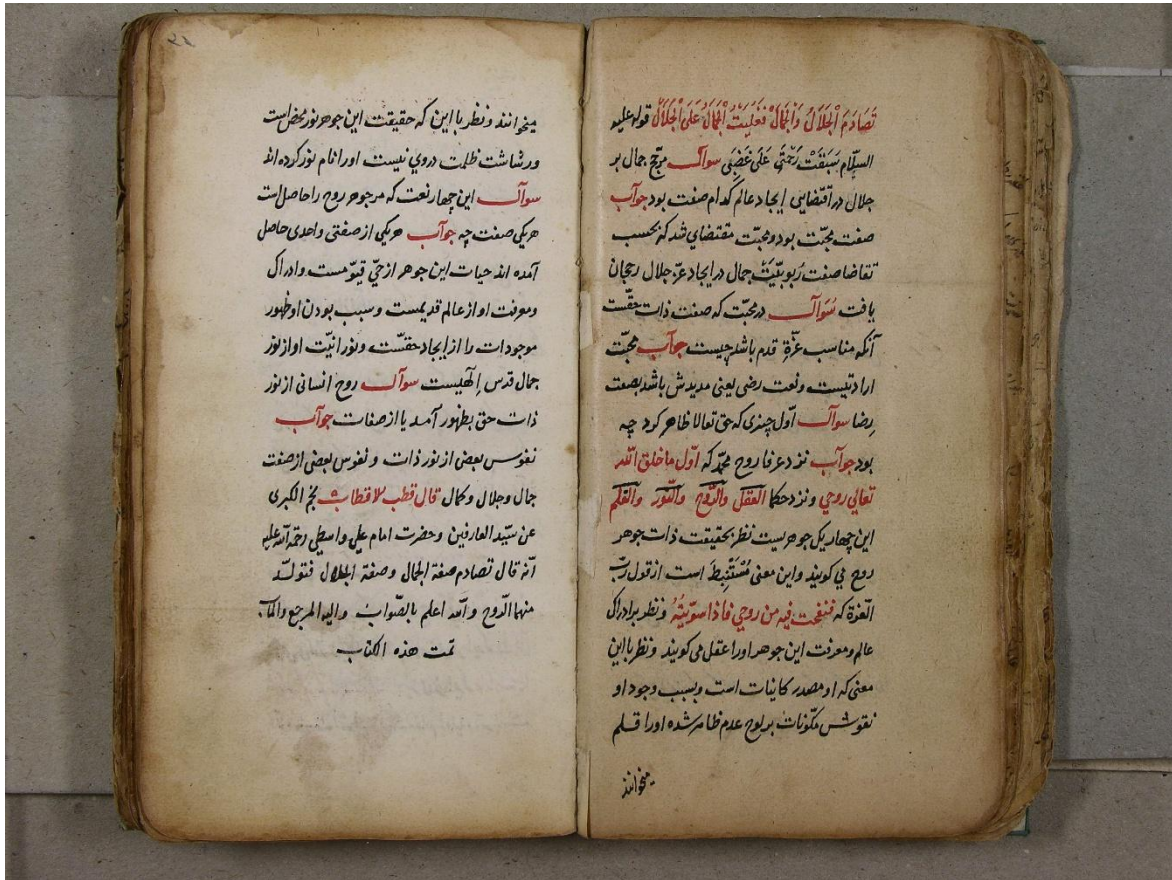 تَصَادَمَ الْجَلَالُ وَالْجَمَالُ فَغَلَبَتُ الْجَمَالُ عَلَی الْجَلَالُ قوله علیه
السلام سَبَقَتْ رَحْمَتِی عَلَی غَضَبِی سوآل مرجّح جمال بر
جلال در اقتضایی ایجاد عالم کدام صفت بود جوآب
صفت محبّت بود و محبّت مقتضای شد که بحسب
تقاضا صفت رُبوبیّتَ جمال در ایجاد عزّ جلال رجحان
یافت سُوآل در محبّت که صفت ذات حقست
آنکه مناسب عزّة قدم باشد چیست جوآب محبّت
ارادتیست و نعت رضی یعنی مدیدش باشد بصفت
رِضا سوآل اوّل چیزی که حق تعالا ظاهر کرد چه
بود جوآب نزد عرفا روح محمّد که اوّل ما خلق الله
تعالی روحی و نزد حکما العقل والرّوح والنّور والقلم
این چهار یک جوهریست نظر بحقیقت ذات جوهر
روح می کویند و این معنی مُسْتَنْبِطَ است از قول ربّ
العزة که فنفخت فیه من روحی فاذا سوّیتُهُ و نظر بر ادراک
عالم و معرفت این جوهر اورا عقل می کویند و نظر با این
معنی که او مصدر کاینات است و بسبب وجود او
نقوش مکّونات بر لوح عدم ظاهر شده اورا قلم
میخوانند
میخوانند و نظر با این که حقیقت این جوهر نور محض است
و رشاشت ظلمت دروی نیست اورا نام نور کرده اند
سوآل این چهار نعت که مر جوهر روح را حاصل است
هر یکی صفت چه جوآب هر یکی از صفتی واحدی حاصل
آمده اند حیات این جوهر از حیّ قیّومست و ادراک
و معرفت او از عالم قدیمست و سبب بودن او ظهور
موجودات را از ایجاد حقسّت و نورانیّت او از نور
جمال قدس اِلٓهیست سوآل روح انسانی از نور
ذات حق بظهور آمد یا از صفات جوآب
نفوس بعضی از نور ذات و نفوس بعضی از صفت
جمال و جلال و کمال قال قطب الاقطاب نجم الکبری
عن سیّد العارفین و حضرت امام علی واسطی رحمة الله علیه
انّه قال تصادم صفة الجمال وصفة الجلال فتولّد
منهما الرّوح والله اعلم بالصّواب والیه المرجع والمآب
تمت هذه الکتاب